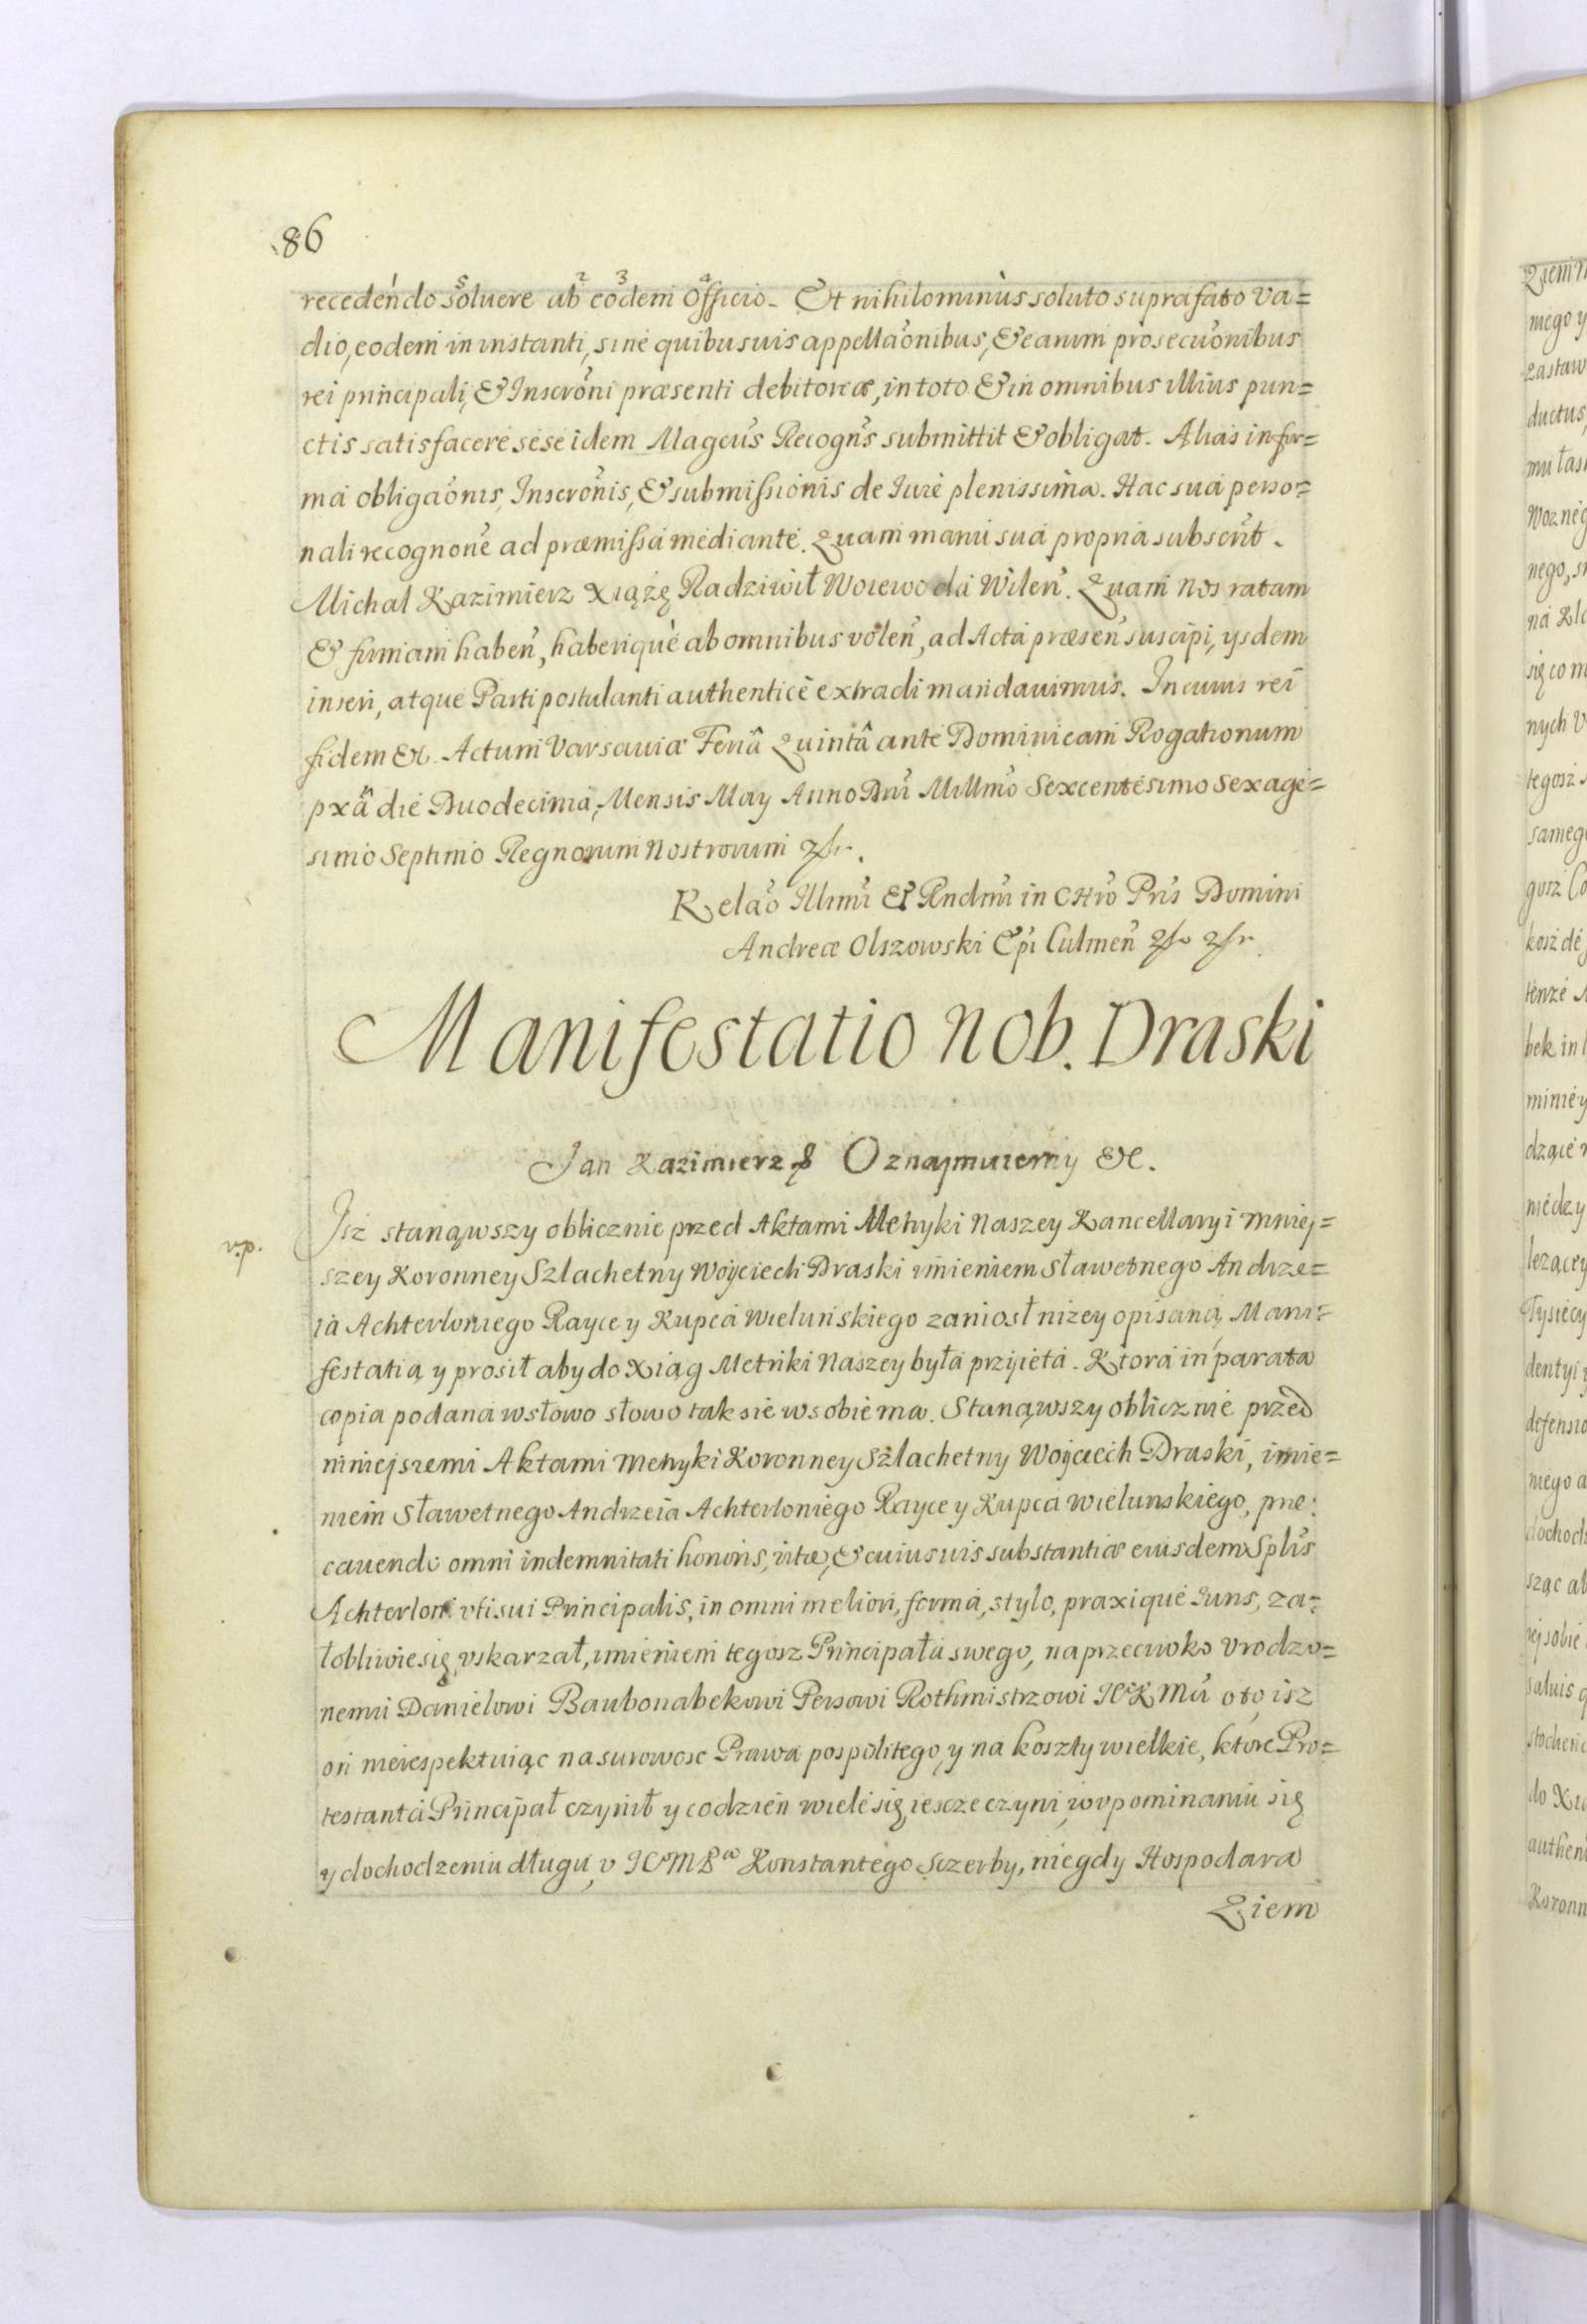 86
recedendo soluere ab eodem Officio. Et nihilominus soluto suprafato va=
dio, eodem in instanti, sine quibusuis appellaonibus, & earum prosecuonibus
rei principali, & Inscroni præsenti debitoreæ, in toto & in omnibus illius pun=
ctis satisfacere sese idem Magcus Recogns submittit & obligat. Alias in for=
ma obligaonis, Inscronis, & submissionis de Iure plenissima. Hac sua perso=
nali recognone ad præmissa mediante. Quam manu sua propria subscrit.
Michal Kazimierz Xiążę Radziwił Woiewoda Wilen. Quam Nos ratam
& firmam haben, haberique ab omnibus volen, ad Acta præsen suscipi, ijsdem
inseri, atque Parti postulanti authentice extradi mandauimus. In cuius rei
fidem &c. Actum Varsauiæ Feriâ Quintâ ante Dominicam Rogationum
pxâ die Duodecima, Mensis May Anno Dni Millmo Sexcentesimo Sexage=
simo Septimo Regnorum Nostrorum
Relao Illmi & Rndmi in Chro Pris Domini
Andreæ Olszowski Epi Culmen
Manifestatio nob. Draski
Jan Kazimierz Oznajmuiemy &c.
v.p.
Jsz stanąwszy oblicznie przed Aktami Metryki Naszey Kancellaryi Mniej=
szey Koronney Szlachetny Woyciech Draski imieniem Sławetnego Andrze=
ia Achterloniego Rayce y Kupca Wieluńskiego zaniosł niżey opisaną Mani=
festatią y prosił aby do Xiąg Metriki Naszey była przyieta. Ktora in parata
copia podana w słowo słowo tak sie w sobie ma. Stanąwszy oblicznie przed
niniejszemi Aktami Metryki Koronney Szlachetny Woyciech Draski, imie=
niem Sławetnego Andrzeia Achterloniego Rayce y Kupca Wielunskiego, præ:
cauendo omni indemnitati honoris, vitæ, & cuiusuis substantiæ eiusdem Splis
Achterloni vti sui Principalis, in omni meliori, forma, stylo, praxique Iuris, ża=
łobliwie się vskarzał, imieniem tegosz Principała swego, naprzeciwko Vrodzo=
nemu Danielowi Baubonabekowi Persowi Rothmistrzowi JKMci oto isz
on nierespektuiąc na surowosc Prawa pospolitego, y na koszty wielkie, ktore Pro=
testanta Principał czynił y codzien wiele się iescze czyni, w vpominaniu się
y dochodzeniu długu, v JEMPa Konstantego Sczerby, niegdy Hospodara
Ziem